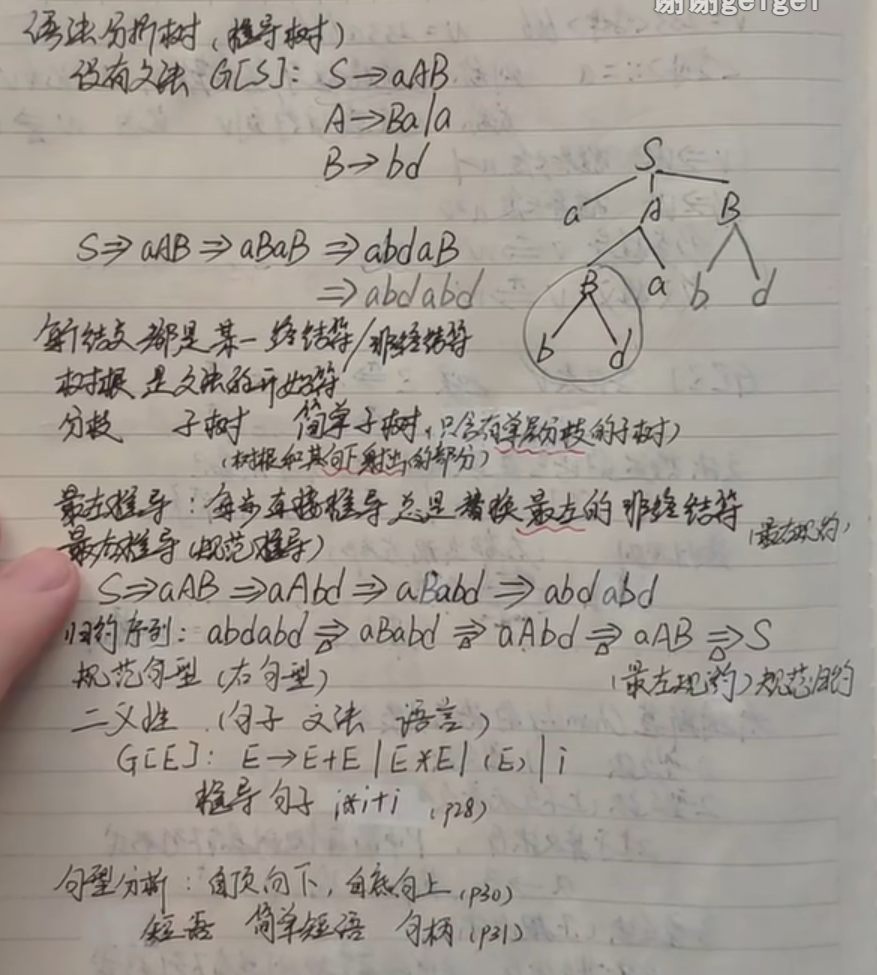 谢谢gergei
语法分析树（推导树）
设有文法 G[S]: S→aAB
A→Ba|a
B→bd
S
a A B
B a b d
b d
S⇒aAB⇒aBaB⇒abdaB
⇒abdabd
每个结点都是某一终结符/非终结符
树根是文法的开始符
分枝 子树 简单子树（只含有单层分枝的子树）
（树根和其向下射出的部分）
最左推导：每步直接推导总是替换最左的非终结符
最右推导（规范推导） （最左规约）
S⇒aAB⇒aAbd⇒aBabd⇒abdabd
归约序列：abdabd⇒aBabd⇒aAbd⇒aAB⇒S
规范句型（右句型） （最左规约）规范归约
二义性（句子 文法 语言）
G[E]: E→E+E|E*E|(E)|i
推导句子 i*i+i (p28)
句型分析：自顶向下，自底向上 (p30)
短语 简单短语 句柄 (p31)